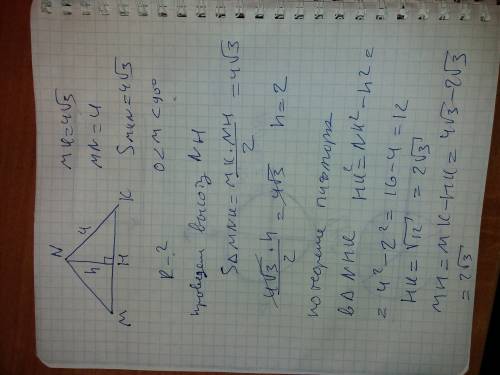 MK=4√3
MN=4
S MKN=4√3
0<M<90°
N
4
h
M
H
K
R-?
проведем высоту NH
S△MNK=MK·NH/2=4√3
4√3·h/2=4√3 h=2
по теореме пифагора
в△NHK HK²=NK²-h²=
=4²-2²=16-4=12
HK=√12=2√3
MH=MK-HK=4√3-2√3
=2√3